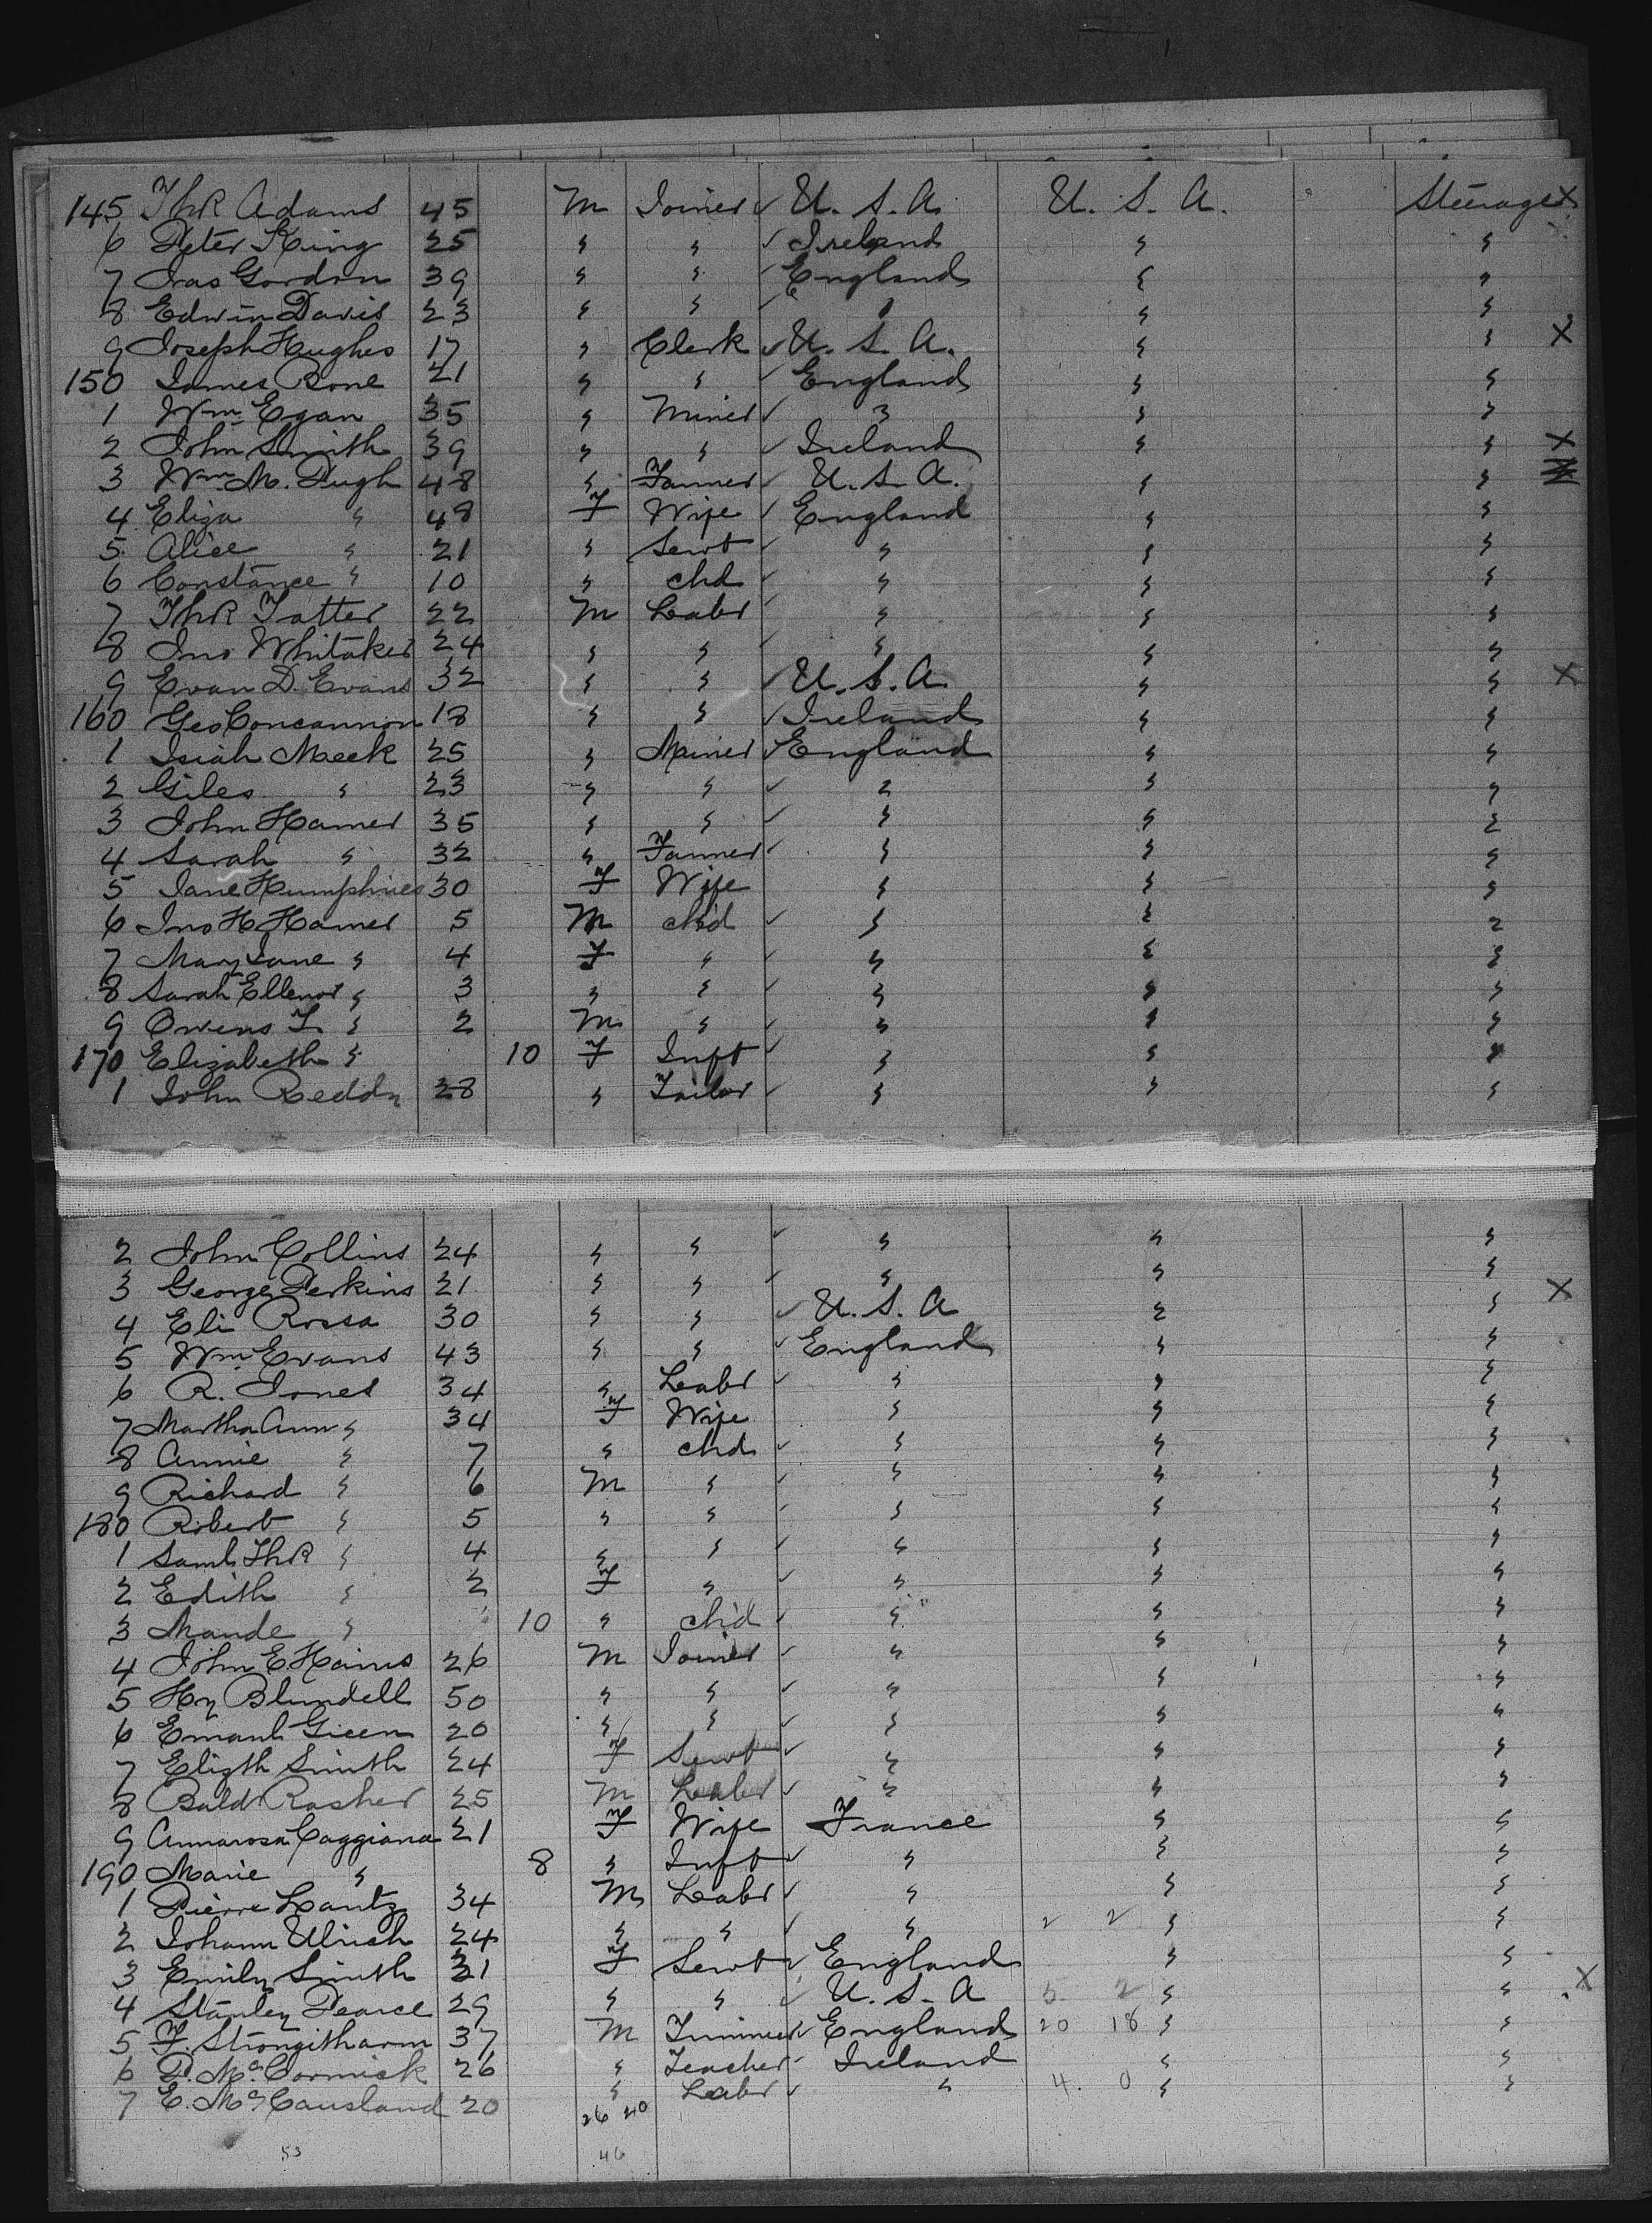 145 Thos Adams 45 M Joiner ✓ U. S. A. U. S. A. Steerage X
6 Peter King 25 " " ✓ Ireland " "
7 Jas Gordon 39 " " ✓ England " "
8 Edwin Davis 23 " " ✓ " " "
9 Joseph Hughes 17 " Clerk ✓ U. S. A. " " X
150 James Bone 21 " " ✓ England " "
1 Wm Egan 35 " Miner ✓ " " "
2 John Smith 39 " " ✓ Ireland " " X
3 Wm M. Pugh 48 " Farmer ✓ U. S. A. " "
4 Eliza " 48 F Wife ✓ England " "
5 Alice " 21 " Servt ✓ " " "
6 Constance " 10 " chd ✓ " " "
7 Thos Tatter 22 M Labr ✓ " " "
8 Jno Whitaker 24 " " ✓ " " "
9 Evan D. Evans 32 " " ✓ U. S. A. " " X
160 Geo Concannon 18 " " ✓ Ireland " "
1 Isiah Meek 25 " Miner ✓ England " "
2 Giles " 23 " " ✓ " " "
3 John Hamer 35 " " ✓ " " "
4 Sarah " 32 " Farmer ✓ " " "
5 Jane Humphries 30 F Wife " " "
6 Jno H Hamer 5 M chd ✓ " " "
7 Mary Jane " 4 F " ✓ " " "
8 Sarah Ellenor " 3 " " ✓ " " "
9 Owens T. " 2 M " ✓ " " "
170 Elizabeth " 10 F Inft ✓ " " "
1 John Reddy 28 " Tailor ✓ " " "
2 John Collins 24 " " ✓ " " "
3 George Perkins 21 " " ✓ " " "
4 Eli Rossa 30 " " ✓ U. S. A " " X
5 Wm Evans 43 " " ✓ England " "
6 R. Jones 34 " Labr ✓ " " "
7 Martha Ann " 34 F Wife " " "
8 Annie " 7 " chd ✓ " " "
9 Richard " 6 M " ✓ " " "
180 Robert " 5 " " ✓ " " "
1 Saml Thos " 4 " " ✓ " " "
2 Edith " 2 F " ✓ " " "
3 Maude " 10 " chd ✓ " " "
4 John E Hains 26 M Joiner ✓ " " "
5 Hy Blundell 50 " " ✓ " " "
6 Emanl Green 20 " " ✓ " " "
7 Elizth Smith 24 F Servt ✓ " " "
8 Bald Rosher 25 M Labr ✓ " " "
9 Annarosa Caggiana 21 F Wife France " "
190 Marie " 8 " Inft ✓ " " "
1 Pierre Lantz 34 M Labr ✓ " " "
2 Johann Ulrich 24 " " ✓ " 2 2 " "
3 Emily Smith 21 F Servt ✓ England " "
4 Stanley Pearce 29 " " ✓ U. S. A 5 2 " " X
5 F. Strongitharm 37 M Trimmer ✓ England 20 18 " "
6 P. McCormick 26 " Teacher Ireland " "
7 E. McCausland 20 " Labr ✓ " 4. 0 " "
26 20
53 46